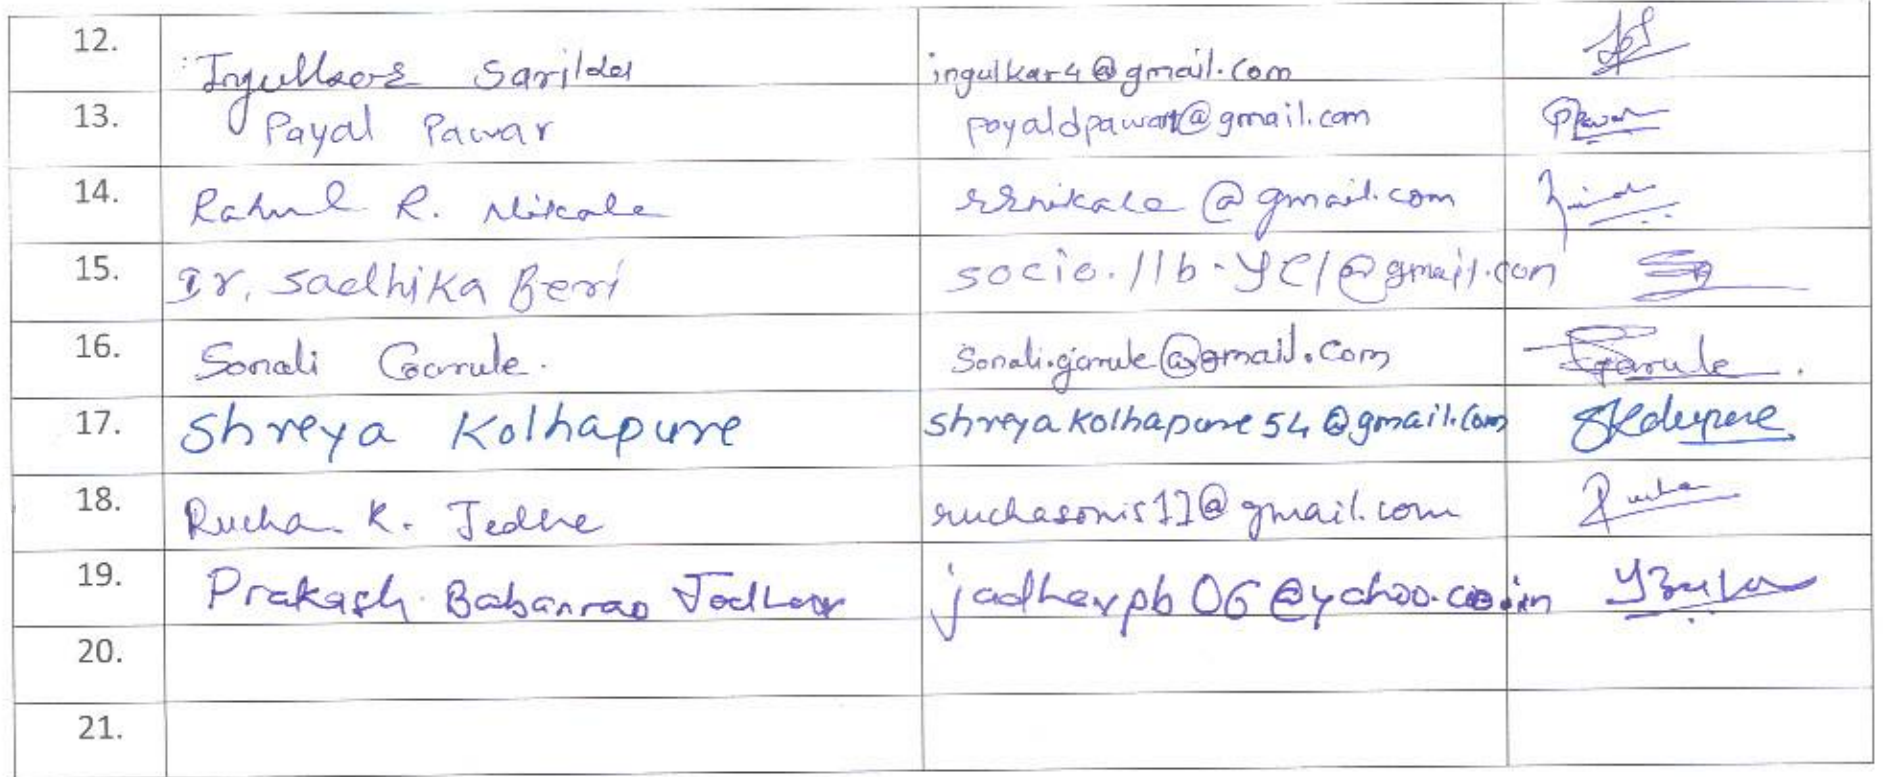 12. Sarilda ingulkar4@gmail.com
13. Payal Pawar payaldpawar@gmail.com PPawar
14. Rahul R. Nikale rrnikale@gmail.com
15. Dr. Sadhika Beri socio.llb-yc1@gmail.com
16. Sonali Garule. sonali.garule@gmail.com Garule.
17. Shreya Kolhapure shreyakolhapure54@gmail.com
18. Rucha K. Jedhe ruchasonis11@gmail.com Rucha
19. Prakash Babanrao Jadhav jadhavpb06@yahoo.co.in
20.
21.